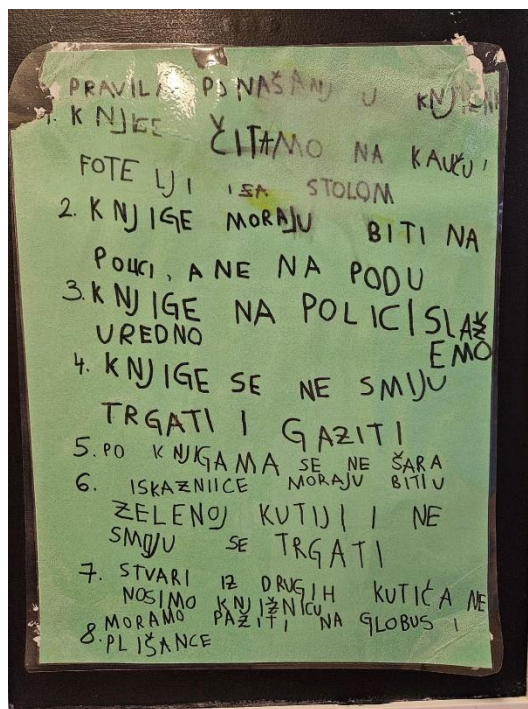 PRAVILA PONAŠANJ U KNJIŽNI
1. KNJIGE ČITAMO NA KAUČU,
FOTELJI I ZA STOLOM
2. KNJIGE MORAJU BITI NA
POLICI, A NE NA PODU
3. KNJIGE NA POLICI SLAŽ
UREDNO EMO
4. KNJIGE SE NE SMIJU
TRGATI I GAZITI
5. PO KNJIGAMA SE NE ŠARA
6. ISKAZNIICE MORAJU BITI U
ZELENOJ KUTIJI I NE
SMIJU SE TRGATI
7. STVARI IZ DRUGIH KUTIĆA NE
NOSIMO KNJIŽNICU
8. MORAMO PAŽITI NA GLOBUS I
PLIŠANCE